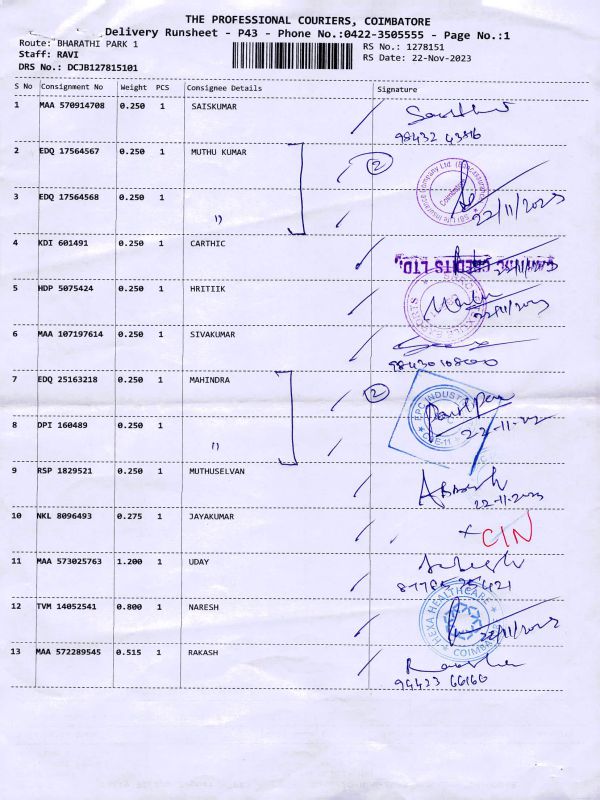 THE PROFESSIONAL COURIERS, COIMBATORE
Delivery Runsheet - P43 - Phone No.:0422-3505555 - Page No.:1
Route: BHARATHI PARK 1
RS No.: 1278151
Staff: RAVI
RS Date: 22-Nov-2023
DRS No.: DCJB127815101
S No Consignment No Weight PCS Consignee Details Signature
1 MAA 570914708 0.250 1 SAISKUMAR
98432 43816
2 EDQ 17564567 0.250 1 MUTHU KUMAR 2
SBI Life Insurance Company Ltd.
Coimbatore
3 EDQ 17564568 0.250 1 22/11/2023
4 KDI 601491 0.250 1 CARTHIC
CREDITS LTD.
5 HDP 5075424 0.250 1 HRITIIK
22/11/2023
6 MAA 107197614 0.250 1 SIVAKUMAR
7 EDQ 25163218 0.250 1 MAHINDRA 2
EPC INDUST
8 DPI 160489 0.250 1 22-11-22
CBE-11
9 RSP 1829521 0.250 1 MUTHUSELVAN
22-11-2023
10 NKL 8096493 0.275 1 JAYAKUMAR CIN
11 MAA 573025763 1.200 1 UDAY
12 TVM 14052541 0.800 1 NARESH
HEXA HEALTHCARE
22/11/2023
COIMBATORE
13 MAA 572289545 0.515 1 RAKASH
99423 66160